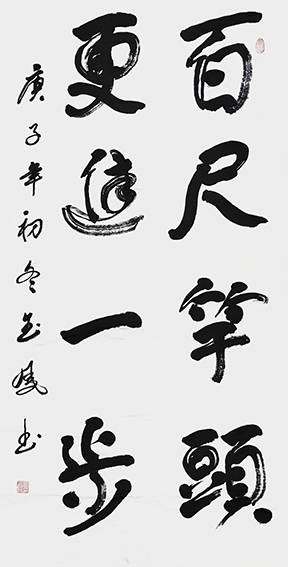 百尺竿頭
更進一步
庚子年初冬